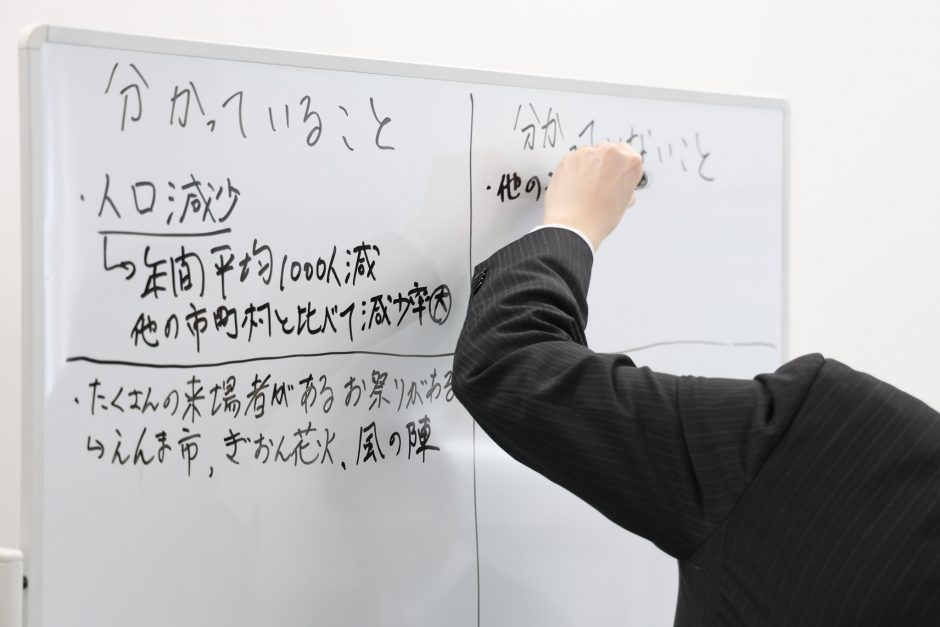 分かっていること
・人口減少
↳年間平均1000人減
他の市町村と比べて減少率大
・たくさんの来場者があるお祭りがある
↳えんま市, ぎおん花火, 風の陣
分かっていないこと
・他の